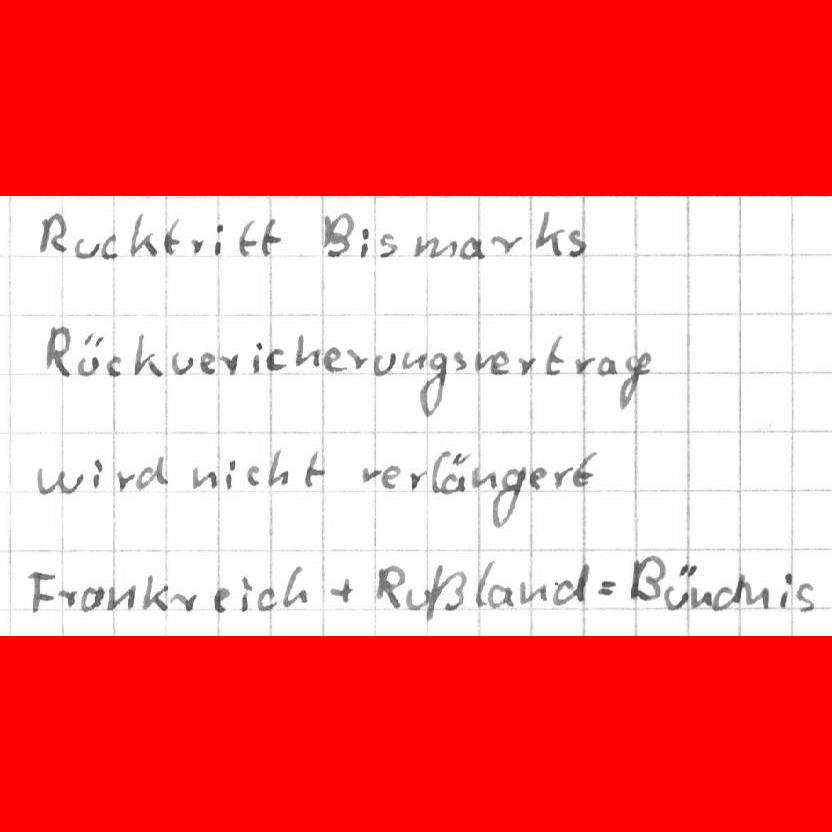 Rucktritt Bismarks
Rückvericherungsvertrage
wird nicht verlängert
Frankreich + Rußland = Bündnis